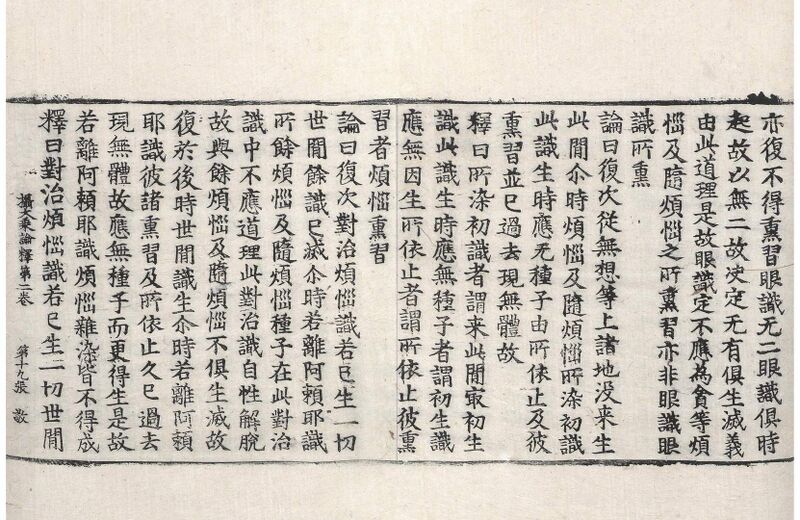 亦復不得熏習眼識无二眼識俱時
起故以無二故决定无有俱生滅義
由此道理是故眼識定不應為貪等煩
惱及隨煩惱之所熏習亦非眼識眼
識所熏
論曰復次從無想等上諸地没来生
此間尒時煩惱及隨煩惱所染初識
此識生時應无種子由所依止及彼
熏習並已過去現無體故
釋曰所染初識者謂来此間㝡初生
識此識生時應無種子者謂初生識
應無因生所依止者謂所依止彼熏
習者煩惱熏習
論曰復次對治煩惱識若已生一切
世間餘識已滅尒時若離阿頼耶識
所餘煩惱及隨煩惱種子在此對治
識中不應道理此對治識自性解脫
故與餘煩惱及隨煩惱不俱生滅故
復於後時世間識生尒時若離阿頼
耶識彼諸熏習及所依止久已過去
現無體故應無種子而更得生是故
若離阿頼耶識煩惱雜染皆不得成
釋曰對治煩惱識若已生一切世間
攝大乘論釋第二卷 第十九張 敬